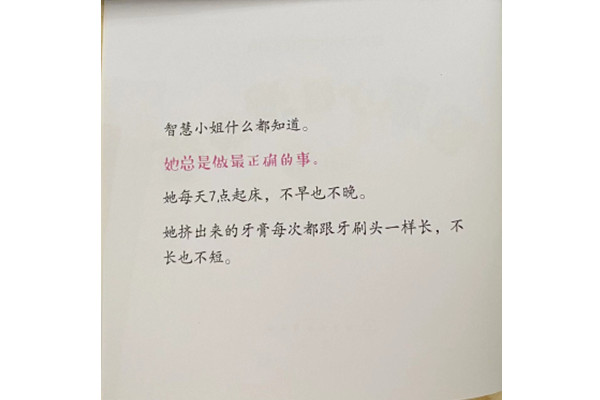 智慧小姐什么都知道。
她总是做最正确的事。
她每天7点起床，不早也不晚。
她挤出来的牙膏每次都跟牙刷头一样长，不
长也不短。